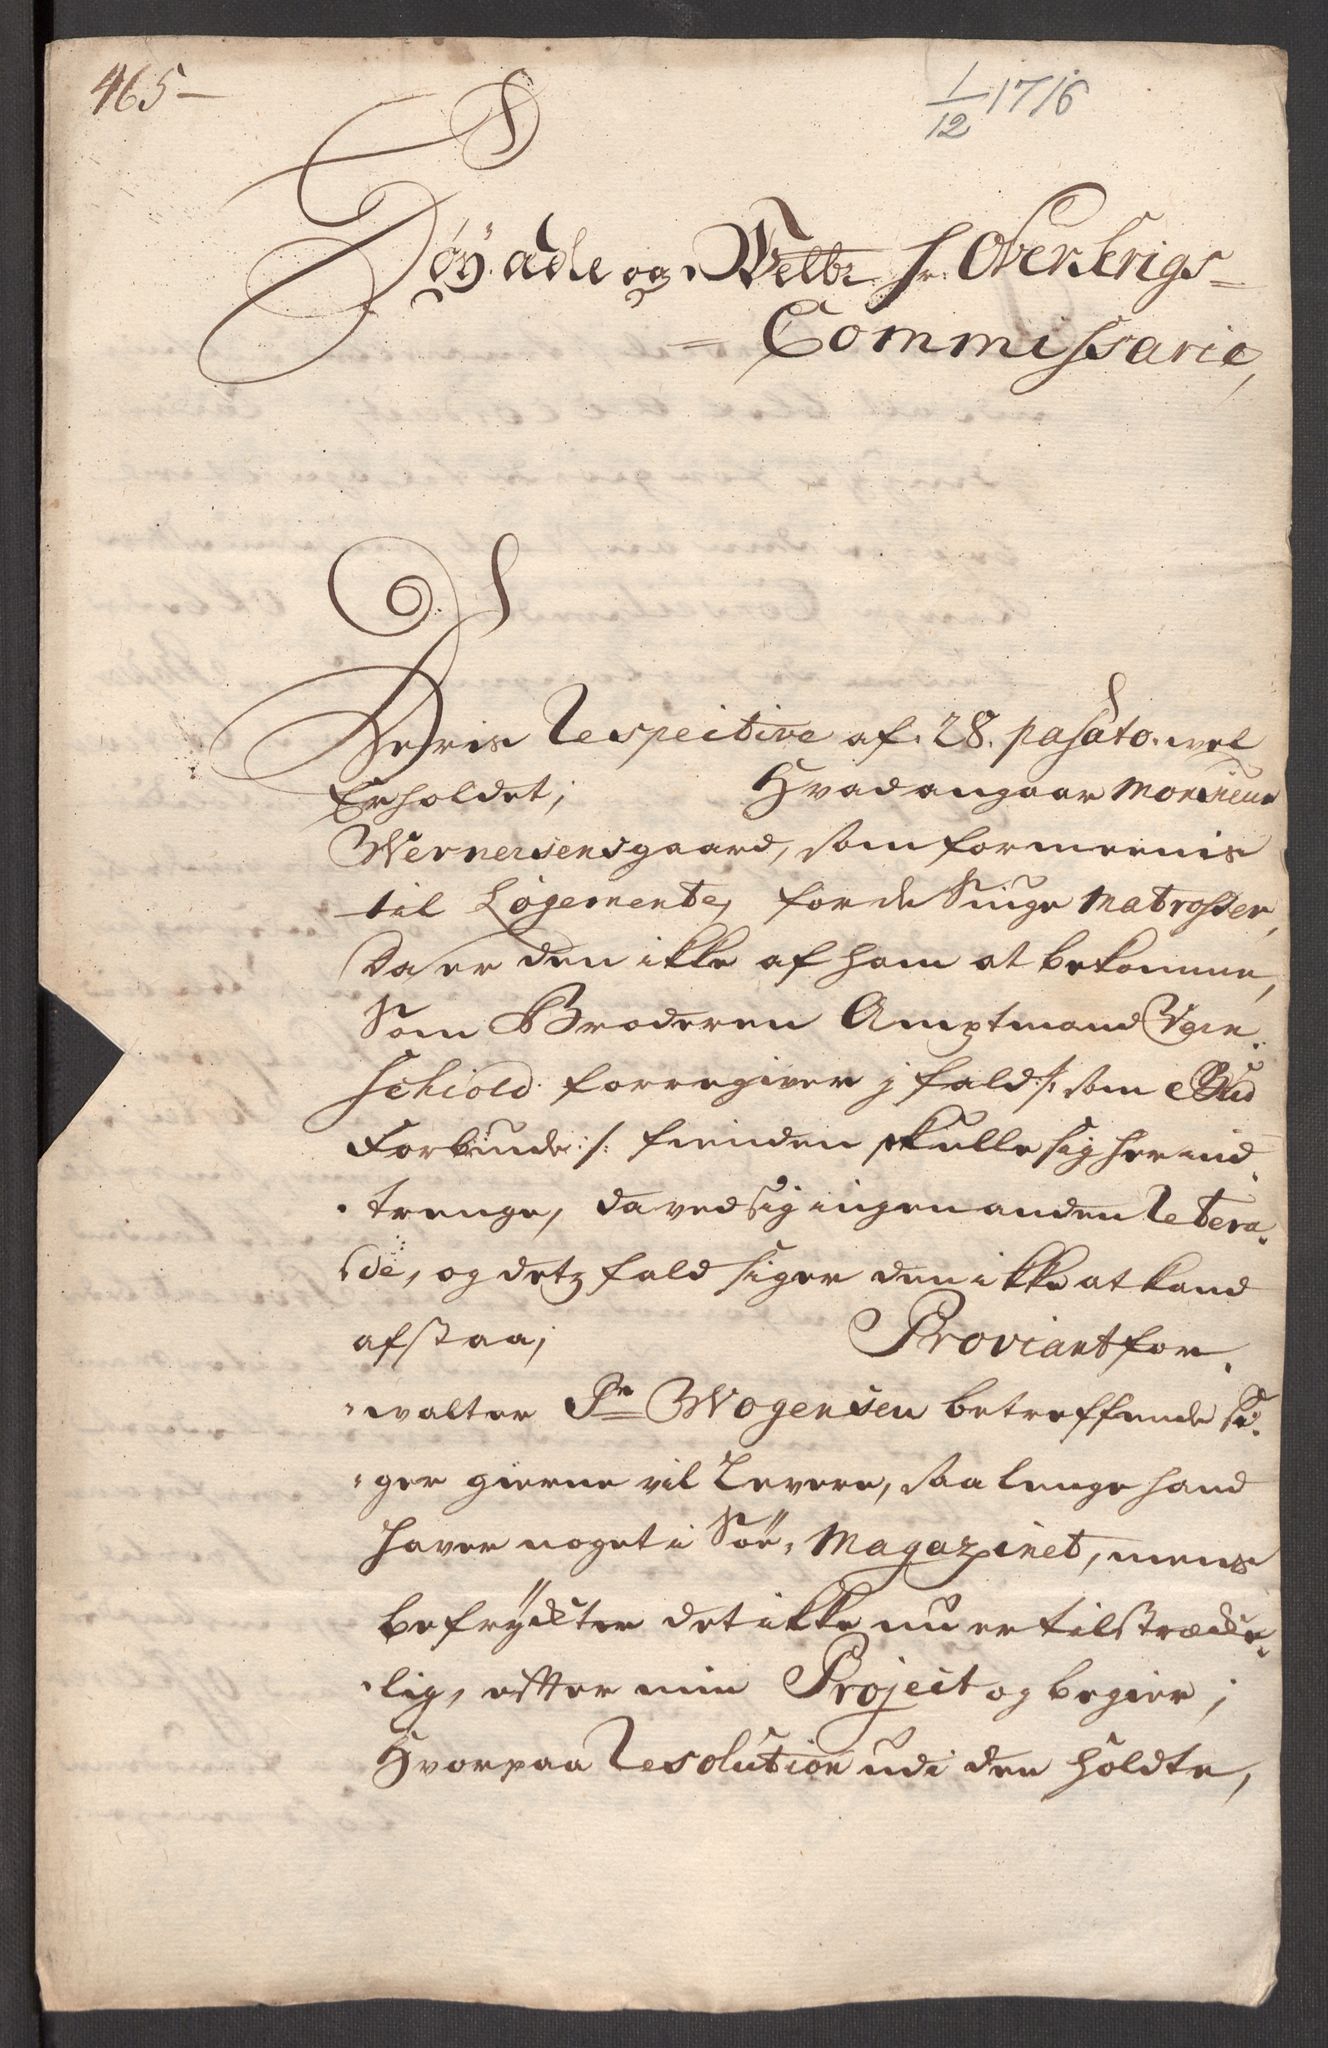 465-
1/12 1716
Höy.ædle og Welb: hr. Over Krigs=
=Commissarie,
Deris Respective af. 28. pasato. wel
Erholdet; Hvad angaar Monsieur
Wernersens gaard, som formeenis
til Logemente, for de Siuge Matrosser,
Da er den ikke af ham at bekomme,
Som Broderen Amptmand Wern.
schiold. forregiver j fald :/: som Gud
Forbiude :/: fienden skulle sig her ind
trenge, da ved sig ingen anden Retera-
de, og detz fald siger den ikke at kand
afstaa; Proviantfor-
walter Pr Mogensen betreffende si-
ger gierne vil Levere, saa lenge hand
haver noget i Söe, Magazinet, mens
befryckter det ikke nu er tilstræcke-
lig, effter min Project og begier;
Hvorpaa Resolution udi den holdte,